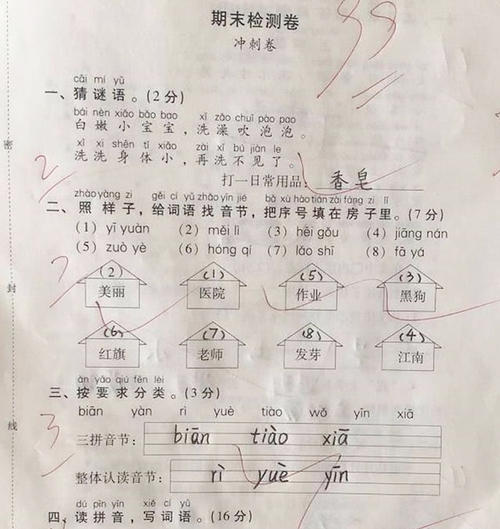 期末检测卷
99
冲刺卷
cāi mí yǔ
一、猜谜语。(2分)
bái nèn xiǎo bǎo bao xǐ zǎo chuī pào pao
白嫩小宝宝，洗澡吹泡泡。
xǐ xi shēn tǐ xiǎo zài xǐ bú jiàn le
洗洗身体小，再洗不见了。
2
打一日常用品：香皂
zhào yàng zi gěi cí yǔ zhǎo yīn jié bǎ xù hào tián zài fáng zi lǐ
二、照样子，给词语找音节，把序号填在房子里。(7分)
(1) yī yuàn (2) měi lì (3) hēi gǒu (4) jiāng nán
(5) zuò yè (6) hóng qí (7) lǎo shī (8) fā yá
7
(2) (1) (5) (3)
美丽 医院 作业 黑狗
(6) (7) (8) (4)
红旗 老师 发芽 江南
àn yāo qiú fēn lèi
三、按要求分类。(3分)
biān yàn rì yuè tiào wǒ yīn xiā
3
三拼音节：biān tiào xiā
整体认读音节：rì yuè yīn
dú pīn yīn xiě cí yǔ
四、读拼音，写词语。(16分)
密
封
线